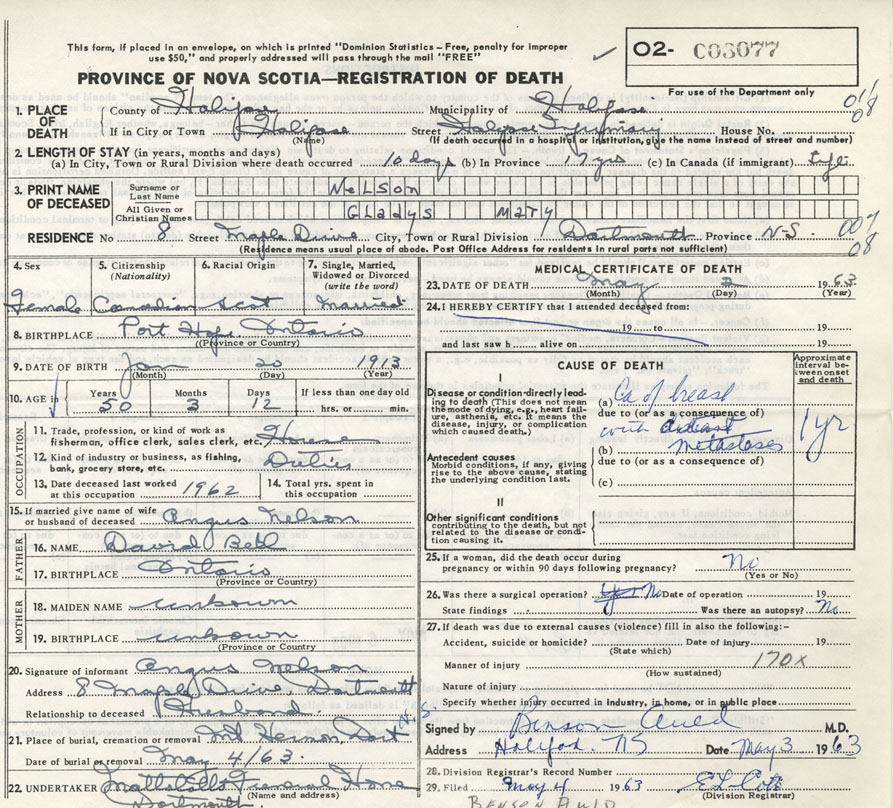 This form, if placed in an envelope, on which is printed "Dominion Statistics – Free, penalty for improper
use $50," and properly addressed will pass through the mail "FREE"
02- C03077
PROVINCE OF NOVA SCOTIA—REGISTRATION OF DEATH
For use of the Department only
1. PLACE OF DEATH County of Halifax Municipality of Halifax
If in City or Town Halifax (Name) Street Halifax Infirmary House No.
(If death occurred in a hospital or institution, give the name instead of street and number)
2. LENGTH OF STAY (in years, months and days)
(a) In City, Town or Rural Division where death occurred 10 days (b) In Province 17 yrs (c) In Canada (if immigrant) Life
3. PRINT NAME OF DECEASED Surname or Last Name NELSON
All Given or Christian Names GLADYS MARY
RESIDENCE No 8 Street Maple Drive City, Town or Rural Division Dartmouth Province N-S.
(Residence means usual place of abode. Post Office Address for residents in rural parts not sufficient)
4. Sex Female
5. Citizenship (Nationality) Canadian
6. Racial Origin Scot
7. Single, Married, Widowed or Divorced (write the word) Married
8. BIRTHPLACE Port Hope Ontario
(Province or Country)
9. DATE OF BIRTH Jan 20 1913
(Month) (Day) (Year)
10. AGE in Years 50 Months 3 Days 12 If less than one day old hrs. or min.
OCCUPATION
11. Trade, profession, or kind of work as fisherman, office clerk, sales clerk, etc. House
12. Kind of industry or business, as fishing, bank, grocery store, etc. Duties
13. Date deceased last worked at this occupation 1962
14. Total yrs. spent in this occupation
15. If married give name of wife or husband of deceased Angus Nelson
FATHER
16. NAME David Bell
17. BIRTHPLACE Ontario
(Province or Country)
MOTHER
18. MAIDEN NAME unknown
19. BIRTHPLACE unknown
(Province or Country)
20. Signature of informant Angus Nelson
Address 8 Maple Drive, Dartmouth
Relationship to deceased Husband
21. Place of burial, cremation or removal Mt Hermon, Dart N.S.
Date of burial or removal May 4/63.
22. UNDERTAKER Mattatalls Funeral Home
(Name and address)
Dartmouth
MEDICAL CERTIFICATE OF DEATH
23. DATE OF DEATH May 2 1963
(Month) (Day) (Year)
24. I HEREBY CERTIFY that I attended deceased from:
19 to 19
and last saw h alive on 19
CAUSE OF DEATH
Approximate interval between onset and death
I
Disease or condition directly leading to death (This does not mean the mode of dying, e.g., heart failure, asthenia, etc. It means the disease, injury, or complication which caused death.)
(a) Ca of breast
due to (or as a consequence of)
with distant
(b) metastases
1 yr
Antecedent causes
Morbid conditions, if any, giving rise to the above cause, stating the underlying condition last.
due to (or as a consequence of)
(c)
II
Other significant conditions contributing to the death, but not related to the disease or condition causing it.
25. If a woman, did the death occur during pregnancy or within 90 days following pregnancy? No
(Yes or No)
26. Was there a surgical operation? No Date of operation 19
State findings Was there an autopsy? No
27. If death was due to external causes (violence) fill in also the following:-
Accident, suicide or homicide? Date of injury 19
(State which)
Manner of injury 170X
(How sustained)
Nature of injury
Specify whether injury occurred in Industry, in home, or in public place
Signed by Benson Auld M.D.
Address Halifax. NS Date May 3 1963
28. Division Registrar's Record Number
29. Filed May 4 1963
(Division Registrar)
BENSON AULD